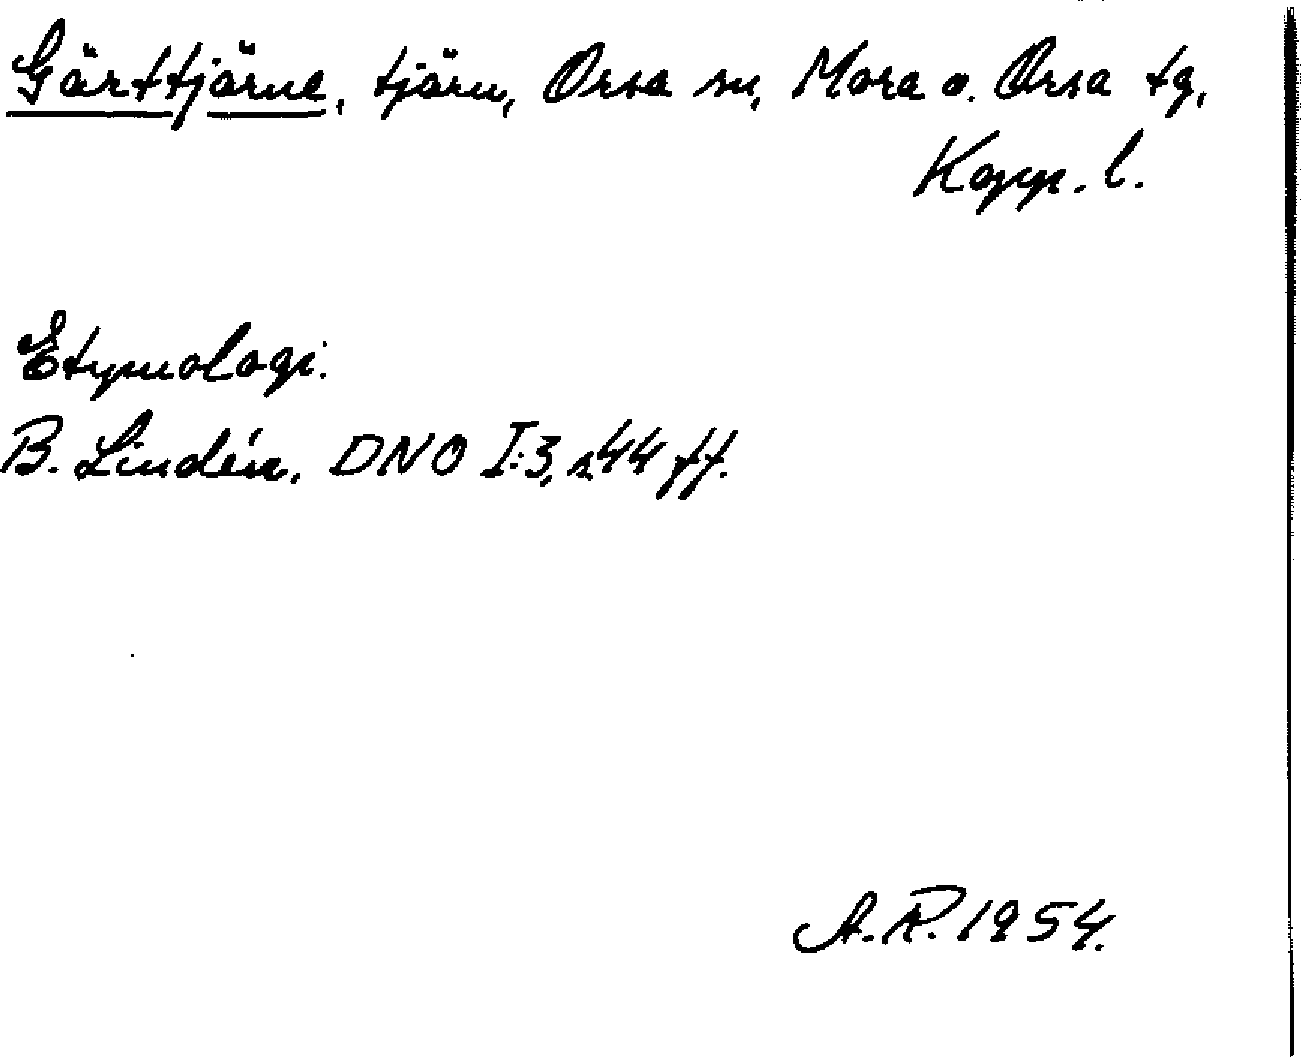 Gärttjärne, tjärn, Orsa sn, Mora o. Orsa tg,
Kopp. l.
Etymologi:
B. Lindén, DNO I:3, s. 44 ff.
A. R. 1954.